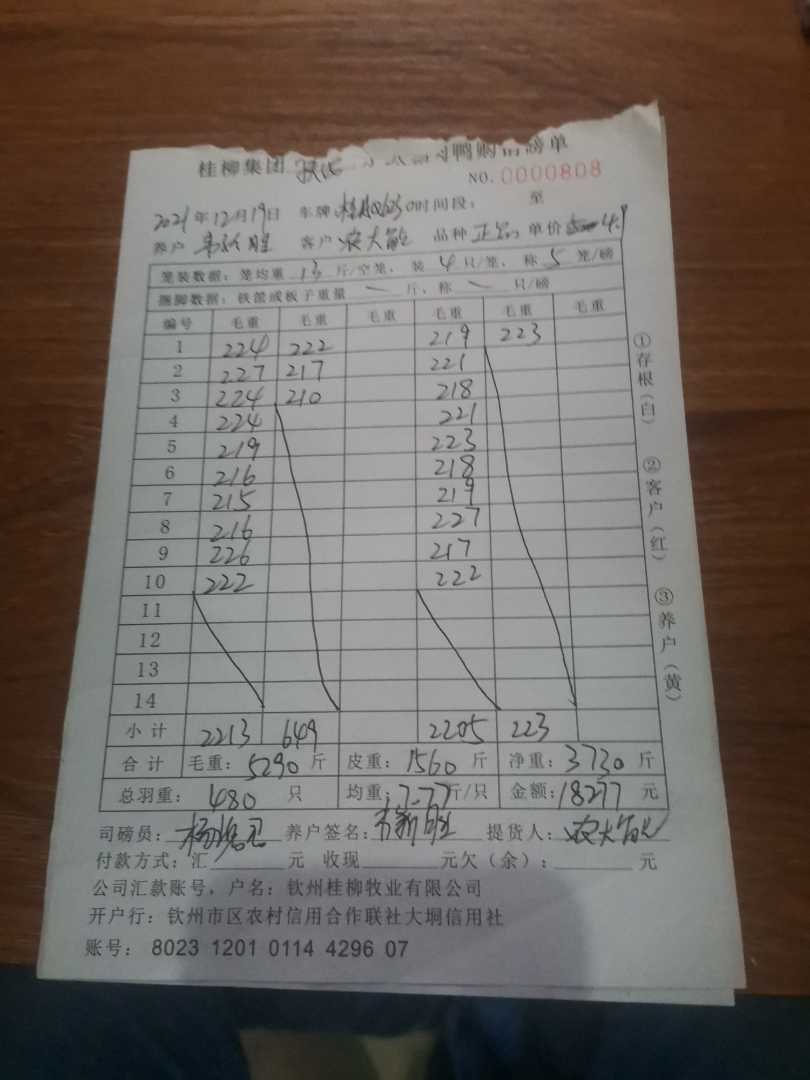 桂柳集团 鸭购销磅单
NO. 0000808
2021年12月19日 车牌 时间段： 至
养户 客户 农大敏 品种 正品 单价 4.9
笼装数据：笼均重 13 斤/空笼， 装 4 只/笼， 称 5 笼/磅
捆脚数据：铁筐或板子重量 斤，称 只/磅
编号 毛重 毛重 毛重 毛重 毛重 毛重
1 224 222 219 223
2 227 217 221
3 224 210 218
4 224 221
5 219 223
6 216 218
7 215 219
8 216 227
9 226 217
10 222 222
11
12
13
14
小计 2213 649 2205 223
合计 毛重：5290 斤 皮重：1560 斤 净重：3730 斤
总羽重： 480 只 均重：7.77斤/只 金额：18277 元
司磅员： 养户签名： 提货人：农大敏
付款方式：汇 元 收现 元欠（余）： 元
公司汇款账号，户名：钦州桂柳牧业有限公司
开户行：钦州市区农村信用合作联社大垌信用社
账号： 8023 1201 0114 4296 07
①存根（白）
②客户（红）
③养户（黄）